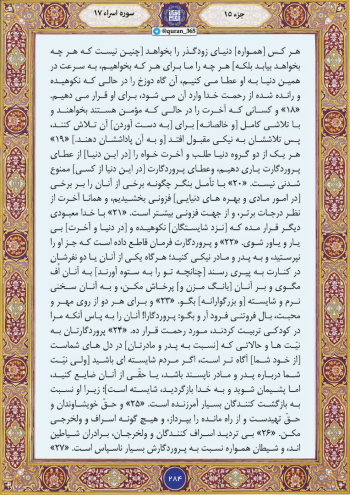 جزء ۱۵
سوره اسراء ۱۷
@quran_365
هر کس [همواره] دنیای زودگذر را بخواهد [چنین نیست که هر چه
بخواهد بیابد بلکه] هر چه را ما برای هر که بخواهیم، به سرعت در
همین دنیا به او عطا می کنیم، آن گاه دوزخ را در حالی که نکوهیده
و رانده شده از رحمت خدا وارد آن می شود، برای او قرار می دهیم.
«۱۸» و کسانی که آخرت را در حالی که مؤمن هستند بخواهند و
با تلاشی کامل [و خالصانه] برای [به دست آوردن] آن تلاش کنند،
پس تلاششان به نیکی مقبول افتد [و به آن پاداششان دهند.] «۱۹»
هر یک از دو گروه دنیا طلب و آخرت خواه را [در این دنیا] از عطای
پروردگارت یاری دهیم، وعطای پروردگارت [در این دنیا از کسی] ممنوع
شدنی نیست. «۲۰» با تأمل بنگر چگونه برخی از آنان را بر برخی
[در امور مادی و بهره های دنیایی] فزونی بخشیدیم، و همانا آخرت از
نظر درجات برتر، و از جهت فزونی بیشتر است. «۲۱» با خدا معبودی
دیگر قرار مده که [نزد شایستگان] نکوهیده و [در دنیا و آخرت] بی
یار و یاور شوی. «۲۲» و پروردگارت فرمان قاطع داده است که جز او را
نپرستید، و به پدر و مادر نیکی کنید؛ هرگاه یکی از آنان یا دو نفرشان
در کنارت به پیری رسند [چنانچه تو را به ستوه آورند] به آنان اُف
مگوی و بر آنان [بانگ مزن و] پرخاش مکن، و به آنان سخنی
نرم و شایسته [و بزرگوارانه] بگو. «۲۳» و برای هر دو از روی مهر و
محبت، بال فروتنی فرود آر و بگو: پروردگارا! آنان را به پاس آنکه مرا
در کودکی تربیت کردند، مورد رحمت قرار ده. «۲۴» پروردگارتان به
نیّت ها و حالاتی که [نسبت به پدر و مادرتان] در دل های شماست
[از خود شما] آگاه تر است، اگر مردم شایسته ای باشید [ولی نیّت
شما درباره پدر و مادر ناپسند باشد، یا حقّی از آنان ضایع کنید،
اما پشیمان شوید و به خدا بازگردید، شایسته است]؛ زیرا او نسبت
به بازگشت کنندگان بسیار آمرزنده است. «۲۵» و حقّ خویشاوندان و
حقّ تهیدست و از راه مانده را بپرداز، و هیچ گونه اسراف و ولخرجی
مکن. «۲۶» بی تردید اسراف کنندگان و ولخرجان، برادران شیاطین
اند، و شیطان همواره نسبت به پروردگارش بسیار ناسپاس است. «۲۷»
۲۸۴